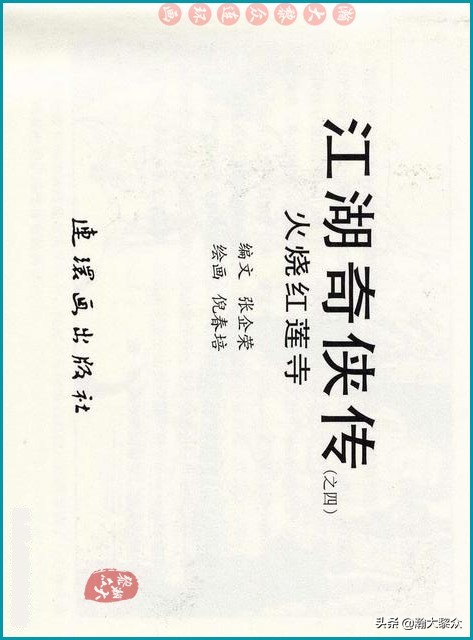 瀚大黎众连环画
江湖奇侠传(之四)
火烧红莲寺
编文 张企荣
绘画 倪春培
连环画出版社
瀚大黎众
头条 @瀚大黎众